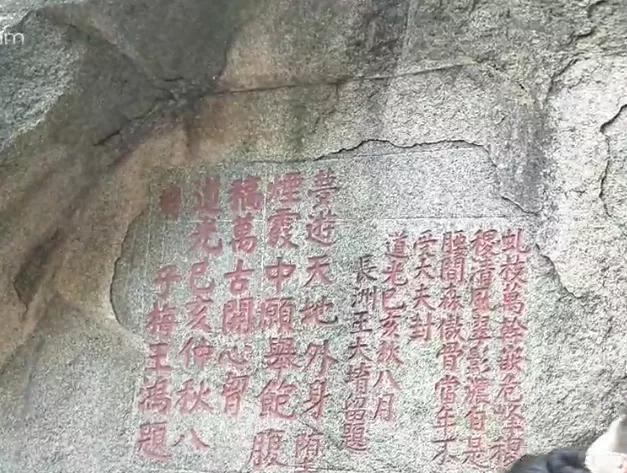 虬枝萬幹嵌危
穆清風翠影濃自是
腰間森傲骨當年不
受大夫封
道光己亥秋八月
長洲王大堉留題
夢遊天地外身墮
煙霞中願舉飽腹
稿萬古開心胸
道光己亥仲秋八
子梅王鴻題